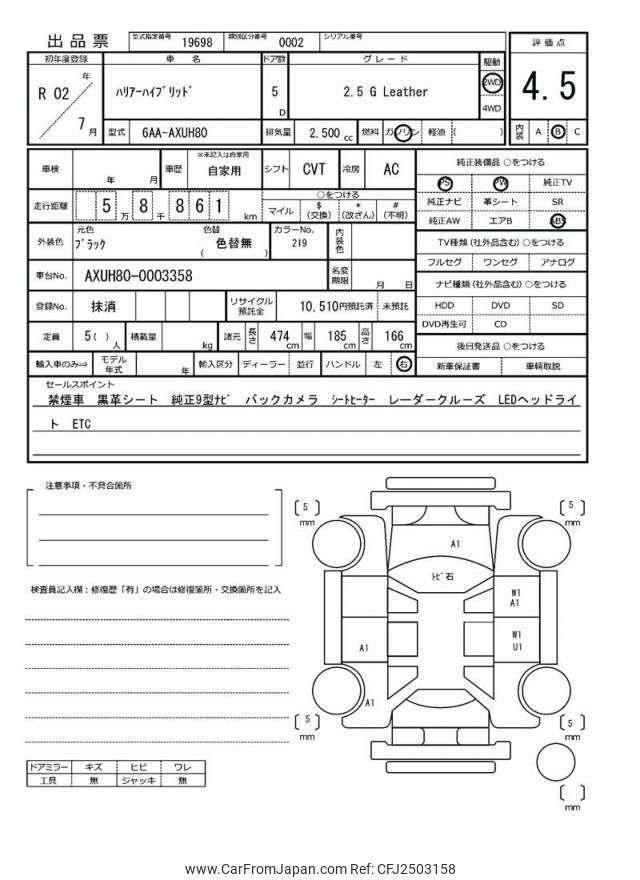 出品票 型式指定番号 19698 類別区分番号 0002 シリアル番号
初年度登録 車 名 ドア数 グレード 駆動 評価点
R 02 年 7 月 ハリアーハイブリッド 5 D 2.5 G Leather 2WD 4WD 4.5
型式 6AA-AXUH80 排気量 2,500 cc 燃料 ガソリン 軽油 ( ) 内装 A B C
車検 年 月 車歴 ※未記入は自家用 自家用 シフト CVT 冷房 AC 純正装備品 ○をつける
PS PW 純正TV
走行距離 5 万 8 千 8 6 1 km ○をつける マイル $ (交換) * (改ざん) # (不明) 純正ナビ 革シート SR
純正AW エアB ABS
外装色 元色 ブラック 色替 ( 色替無 ) カラーNo. 219 内装色 TV種類 (社外品含む) ○をつける
フルセグ ワンセグ アナログ
車台No. AXUH80-0003358 名変期限 月 日 ナビ種類 (社外品含む) ○をつける
登録No. 抹消 リサイクル預託金 10,510円預託済 未預託 HDD DVD SD
DVD再生可 CD
定員 5 ( ) 人 積載量 kg 諸元 長さ 474 cm 幅 185 cm 高さ 166 cm 後日発送品 ○をつける
輸入車のみ⇒ モデル年式 年 輸入区分 ディーラー 並行 ハンドル 左 右 新車保証書 車輌取説
セールスポイント
禁煙車 黒革シート 純正9型ナビ バックカメラ シートヒーター レーダークルーズ LEDヘッドライ
ト ETC
注意事項・不具合箇所
検査員記入欄：修復歴「有」の場合は修復箇所・交換箇所を記入
5 mm
5 mm
A1
トビ石
W1
A1
W1
U1
A1
A1
5 mm
5 mm
mm
ドアミラー キズ ヒビ ワレ
工具 無 ジャッキ 無
www.CarFromJapan.com Ref: CFJ2503158